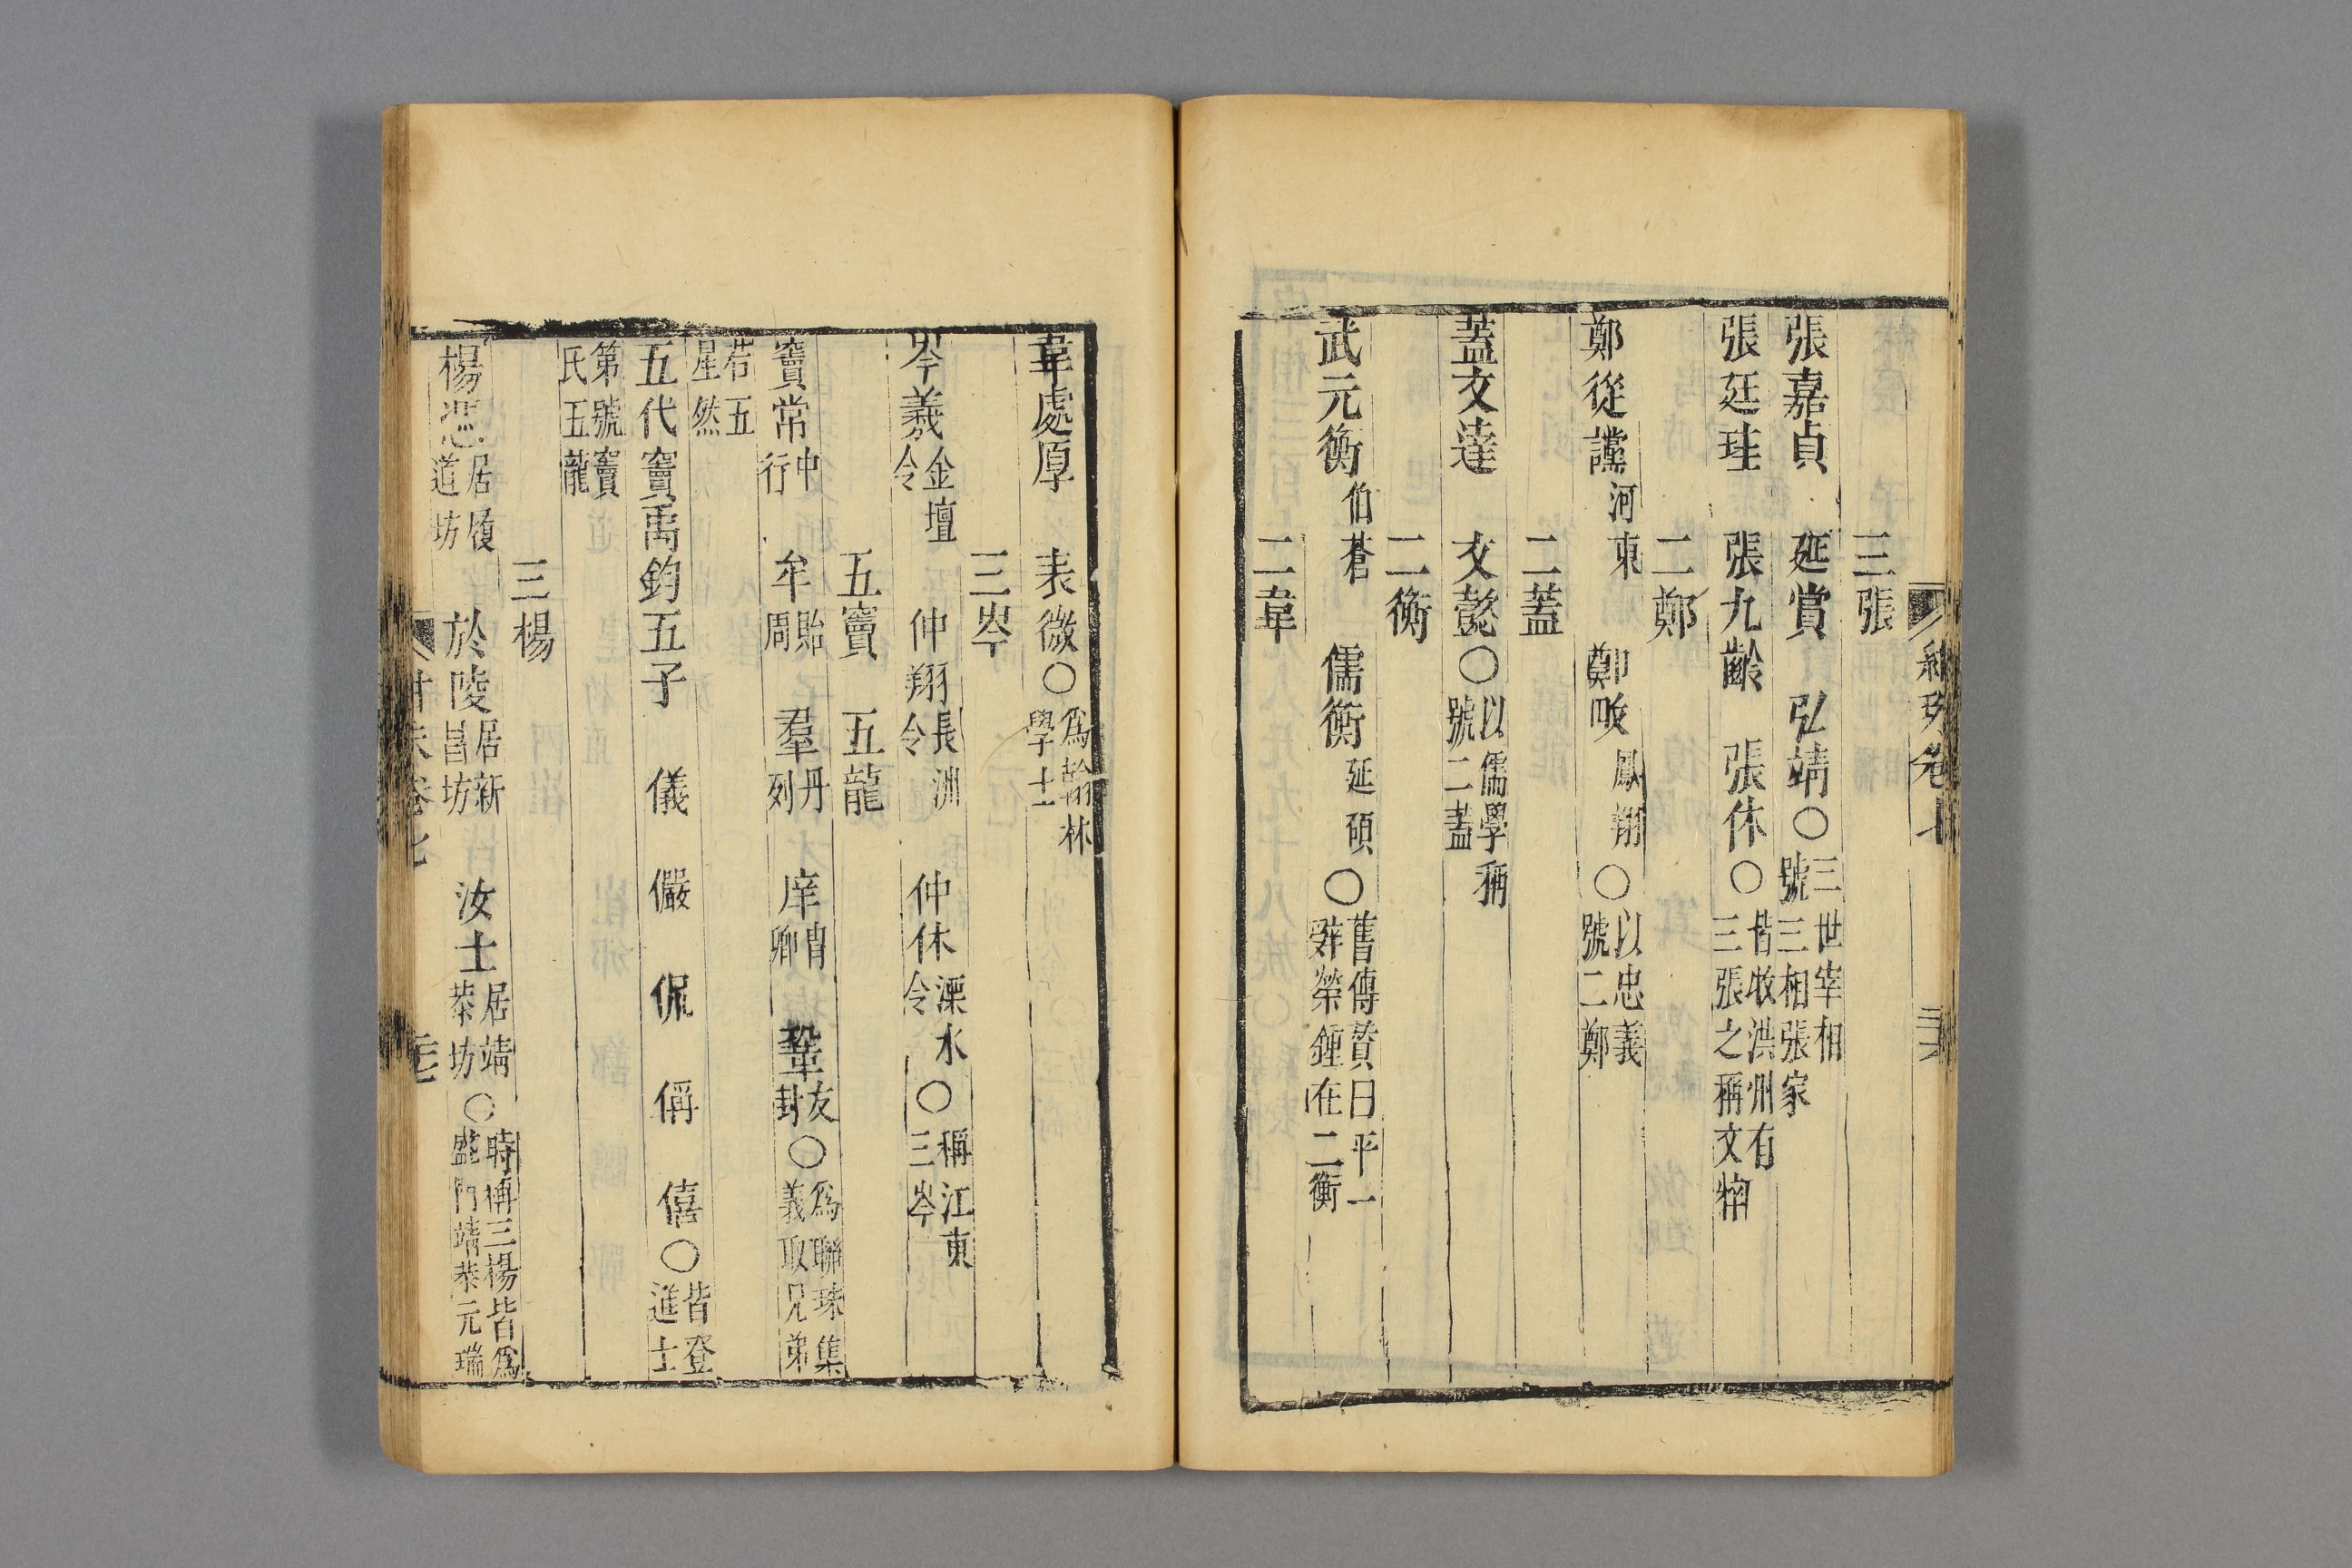 三張
張嘉貞 延賞 弘靖○三世宰相號三相張家
張廷珪 張九齡 張休○皆牧洪州有三張之稱文
二鄭
鄭從讜河東 鄭畋鳳翔○以忠義號二鄭
二蓋
蓋文達 文懿○以儒學稱號二蓋
二衡
武元衡伯蒼 儒衡延碩○舊傳贊曰平一辭榮鍾在二衡
二韋
韋處厚 表微○為翰林學士
三岑
岑羲金壇令 仲翔長洲令 仲休溧水令○稱江東三岑
五竇 五龍
竇常中行 牟貽周 羣丹列 庠冑卿 鞏友封○為聯珠集義取兄弟
若五星然
五代竇禹鈞五子 儀 儼 侃 偁 僖○皆登進士
第號竇氏五龍
三楊
楊憑居履道坊 於陵居新昌坊 汝士居靖恭坊○時稱三楊皆為盛門靖恭元瑞